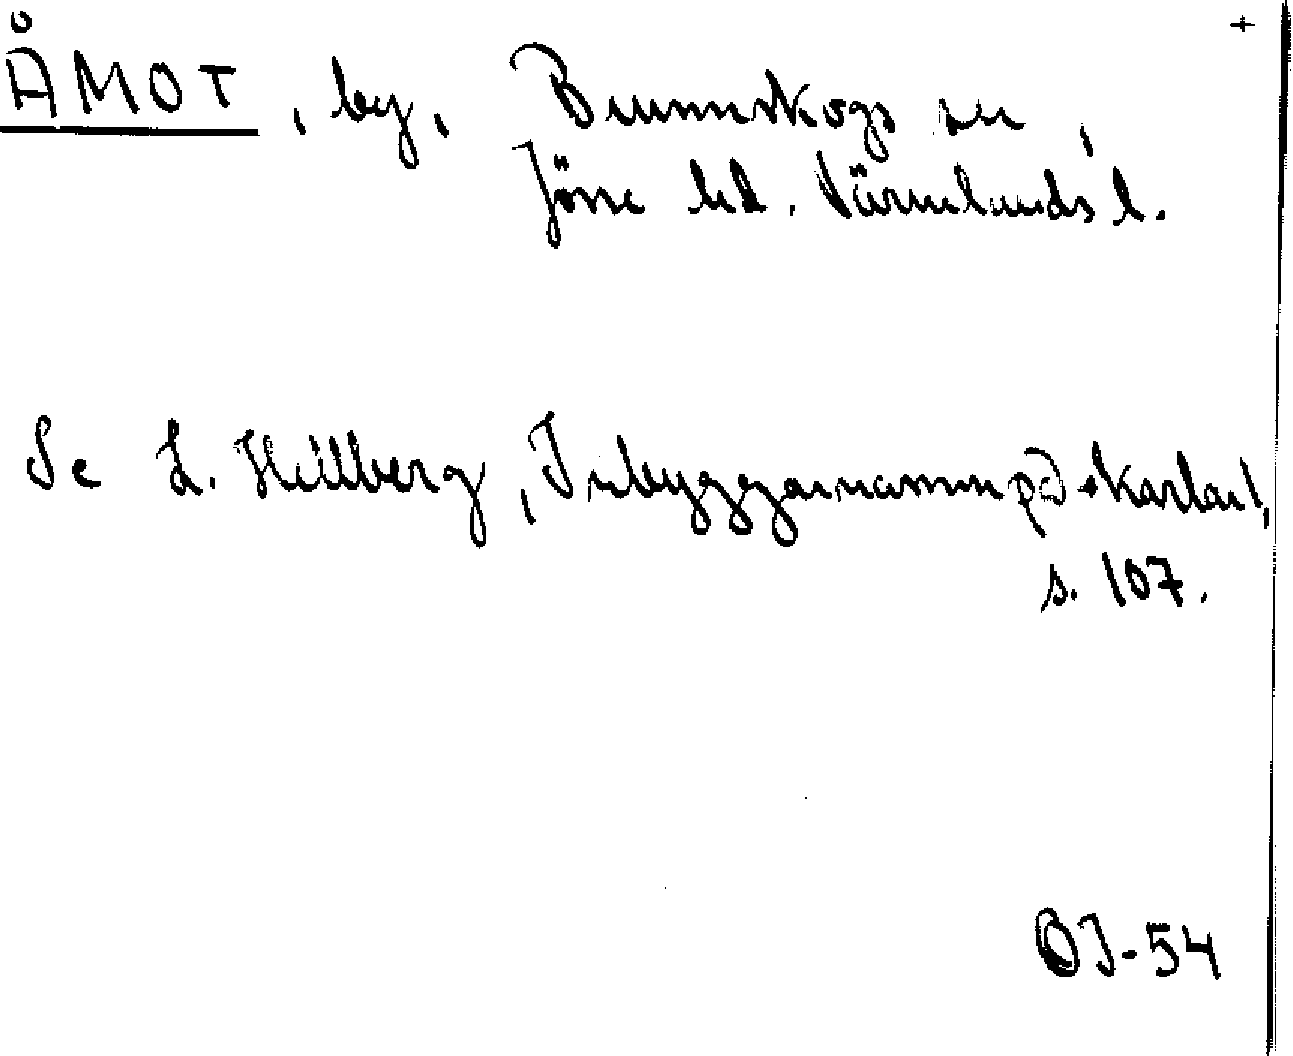 +
ÅMOT, by, Brunnskogs sn,
Jösse hd. Värmlands l.
Se L. Hellberg, Inbyggarnamn på -karlar,
s. 107.
OJ-54